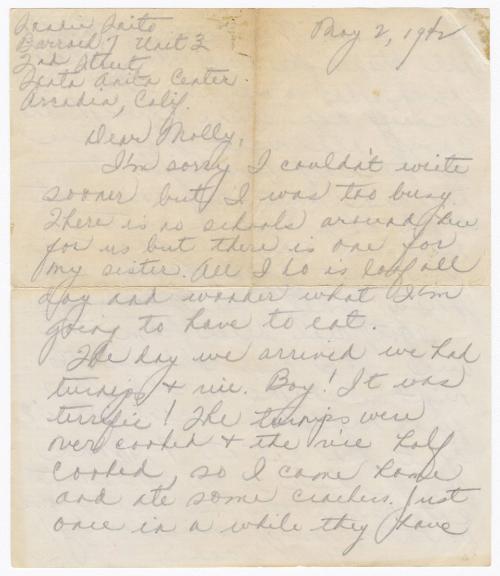 Sadie Saito
Barrack 7 Unit 3
2nd Street
Santa Anita Center
Arcadia, Calif.
May 2, 1942
Dear Molly,
I'm sorry I couldn't write
sooner but I was too busy.
There is no schools around here
for us but there is one for
my sister. All I do is loaf all
day and wonder what I'm
going to have to eat.
The day we arrived we had
turnips + rice. Boy! It was
terrific! The turnips were
over cooked + the rice half
cooked, so I came home
and ate some crackers. Just
once in a while they have